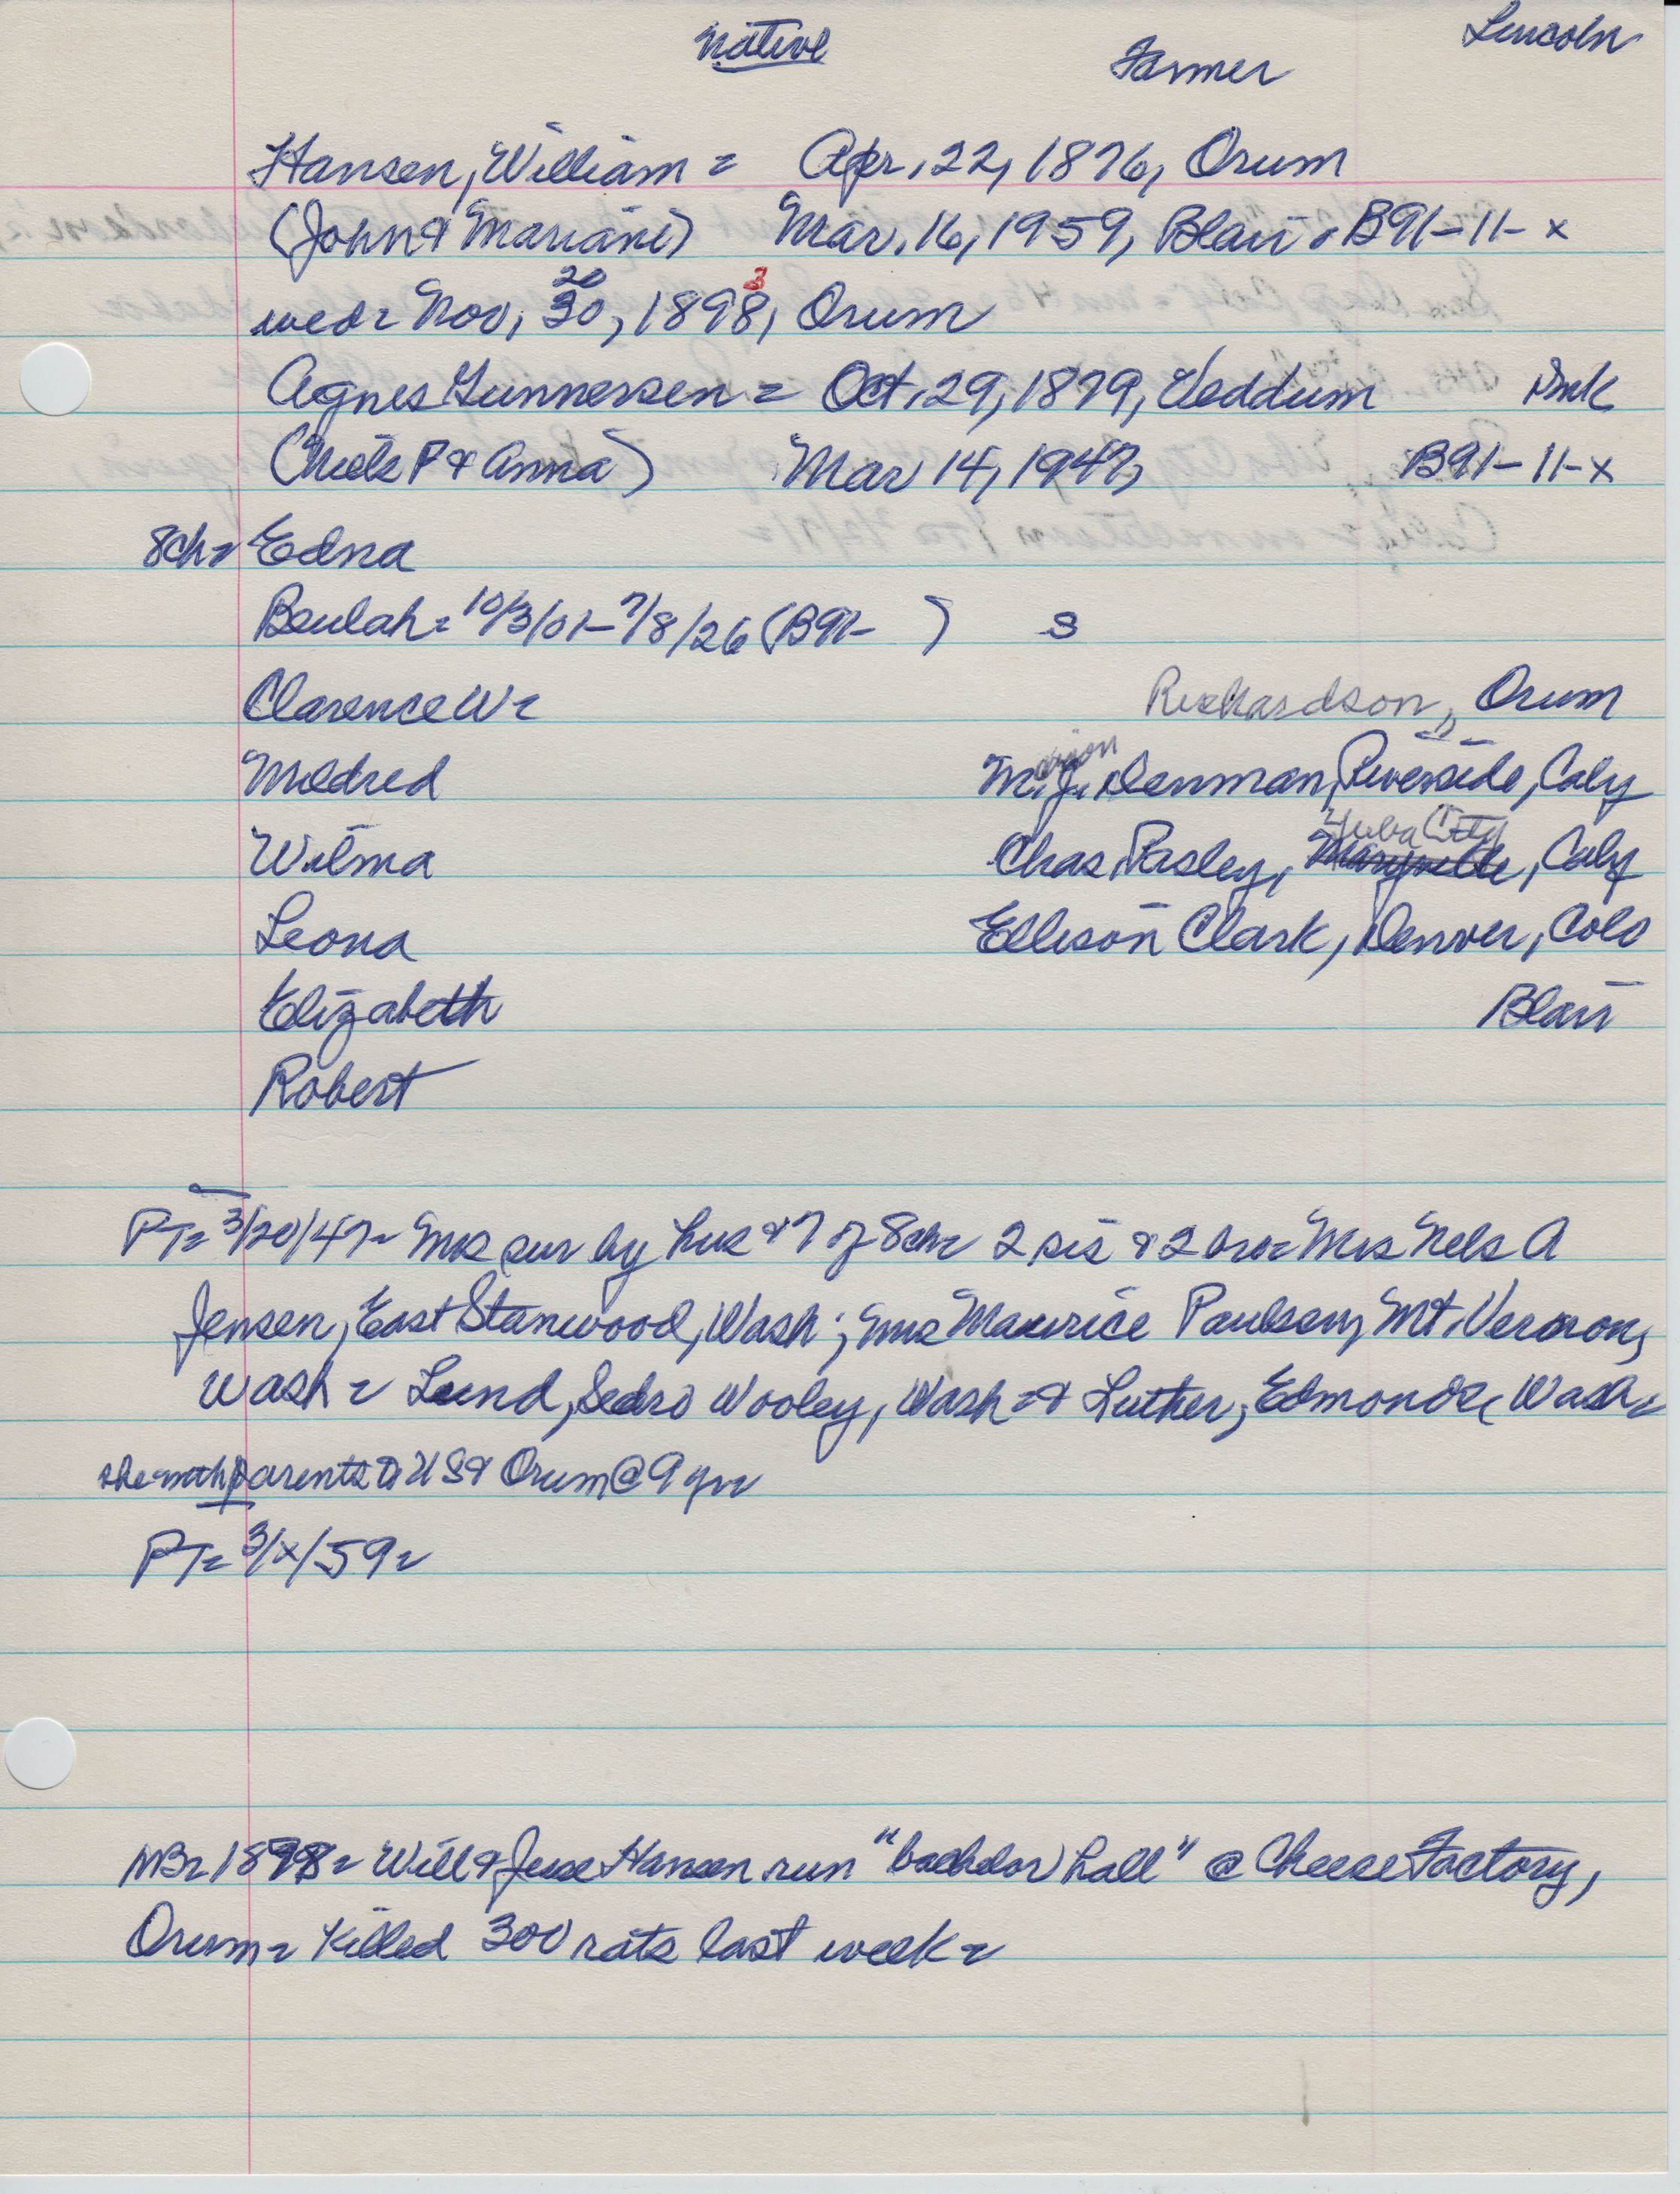 native Farmer Lincoln
Hansen, William = Apr. 22, 1876, Orum
(John & Mariane) Mar. 16, 1959, Blair = B91-11-x
20 3
wed = Nov. 30, 1898, Orum
Agnes Gunnersen = Oct. 29, 1879, Veddum Dmk
(Niels P & Anna) Mar 14, 1947, B91-11-x
8ch = Edna
Beulah = 10/3/01-7/8/26 (B91- ) S
Clarence W = Richardson, Orum
Mildred M. J. Denman, Riverside, Calif
Yuba City
Wilma Chas. Pasley, Calif
Leona Ellison Clark, Denver, Colo
Elizabeth Blair
Robert
PT = 3/20/47 = Mrs sur by hus & 7 of 8ch = 2 sis & 2 bro = Mrs Nels A
Jensen, East Stanwood, Wash; Mrs Maurice Paulsen, Mt. Vernon,
Wash = Lund, Sedro Wooley, Wash = & Luther, Edmonds, Wash =
she with parents to US & Orum @ 9 yr =
PT = 3/x/59 =
1898 = Will & Jesse Hansen run "bachelor hall" @ Cheese Factory,
Orum = Killed 300 rats last week =